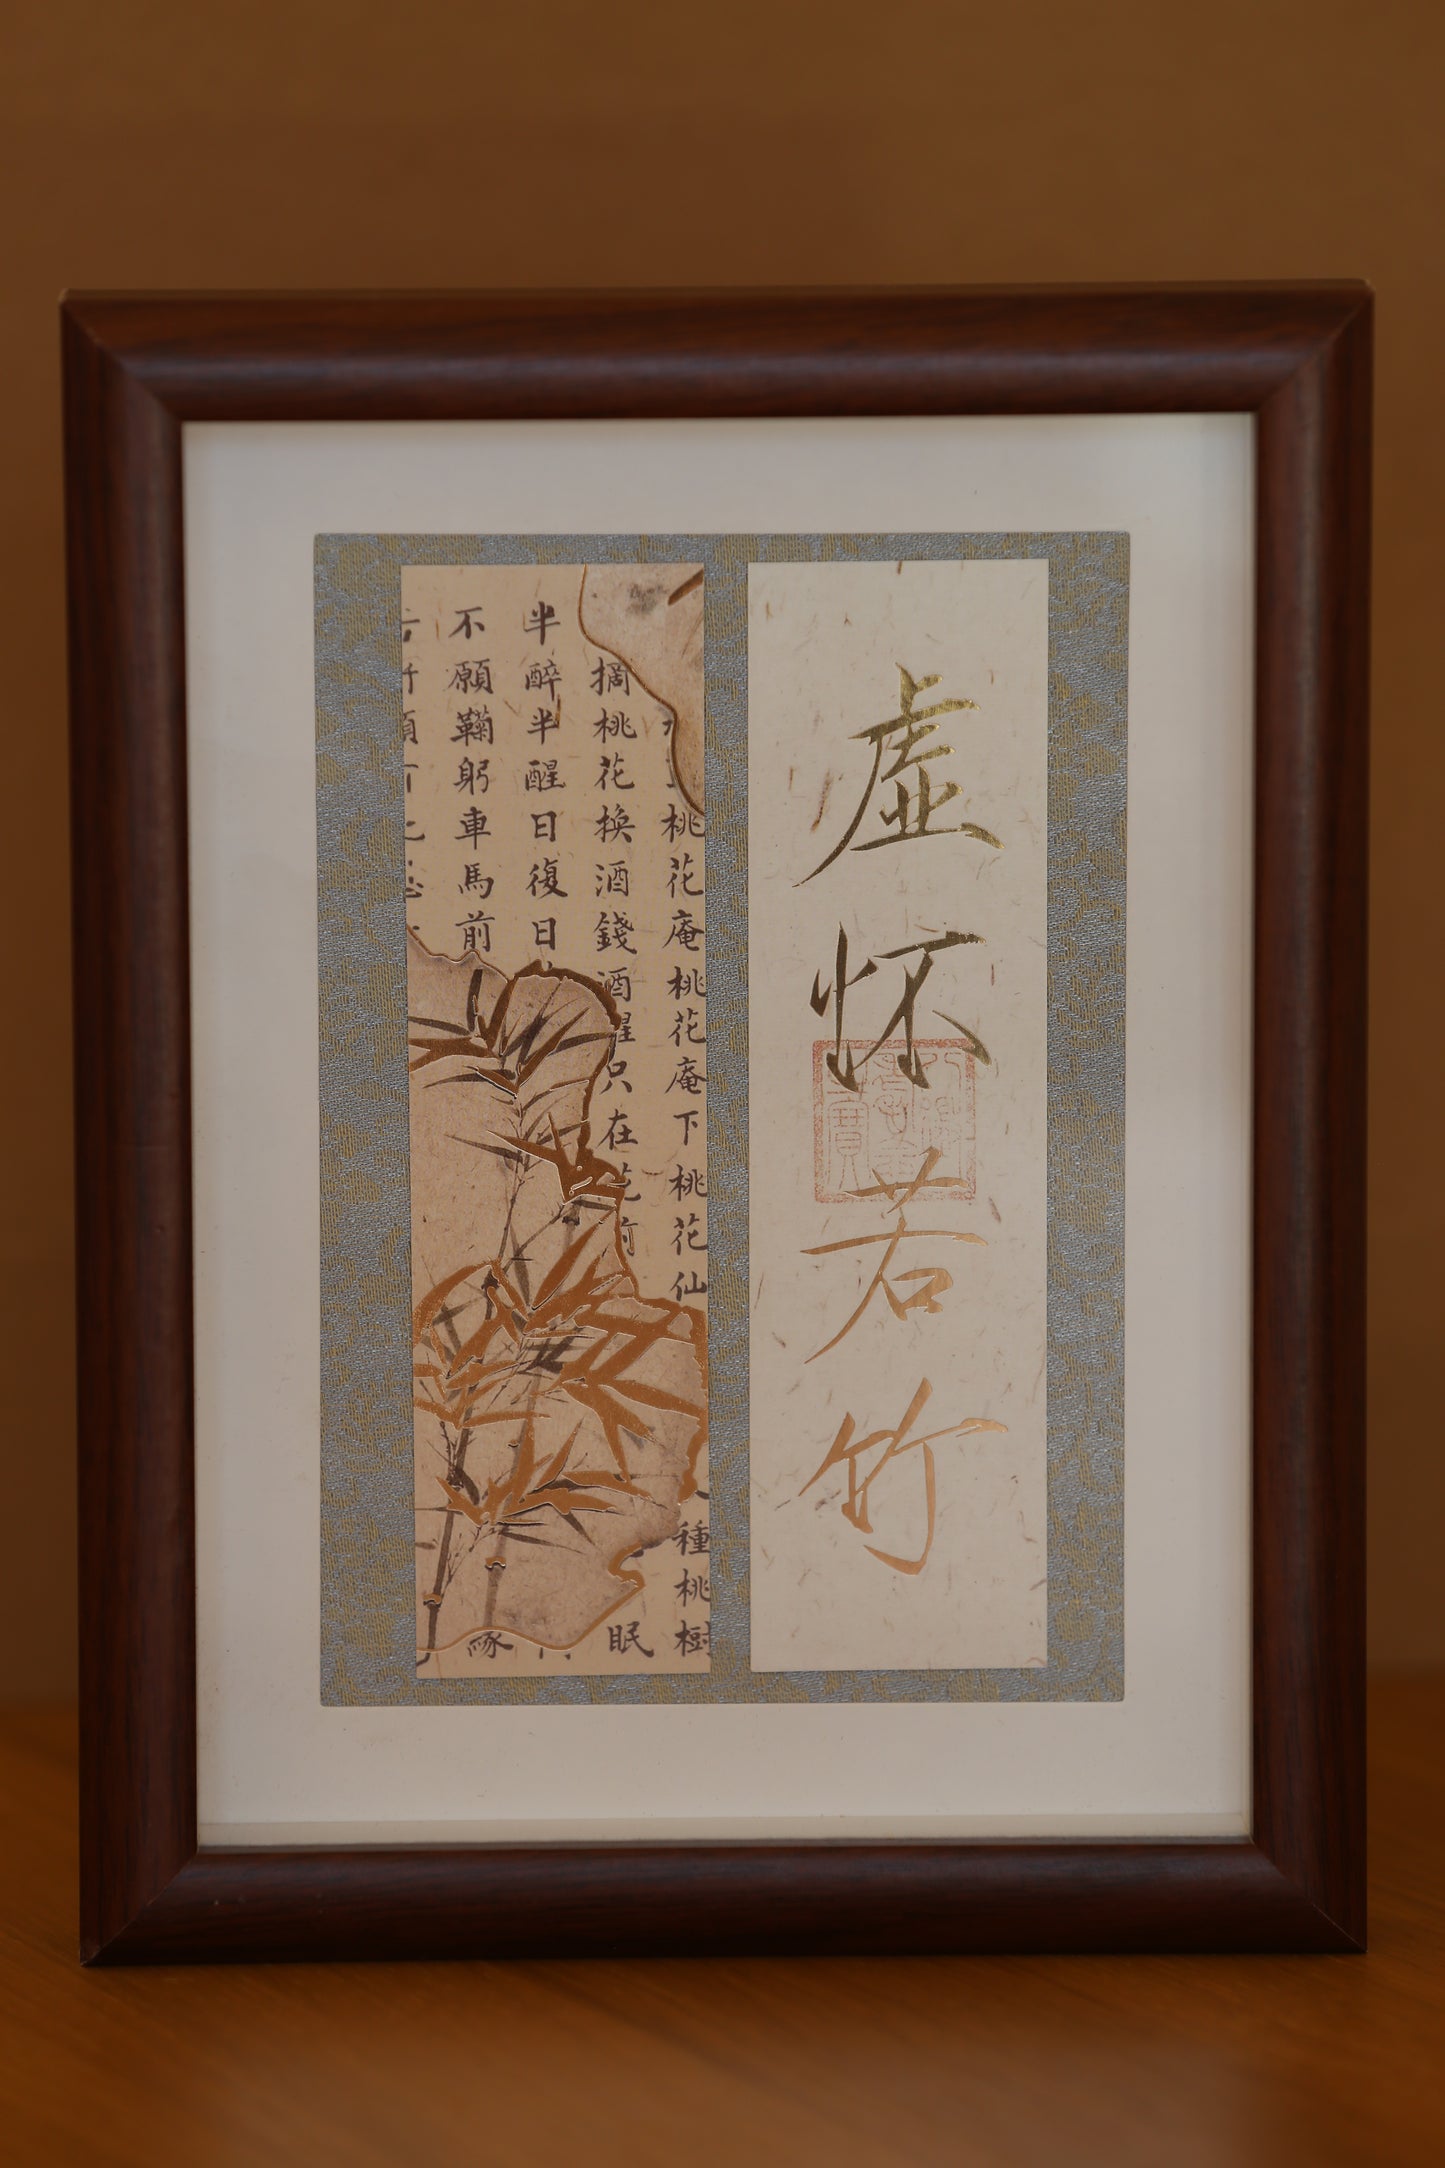 虚怀若竹
桃花庵桃花庵下桃花仙種桃樹
摘桃花換酒錢酒醒只在花前眠
半醉半醒日復日
不願鞠躬車馬前